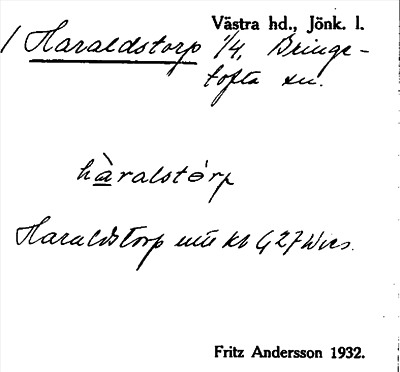 Västra hd., Jönk. l.
/ Haraldstorp 1/4, Bringe-
tofta sn.
hàralstórp
Haraldstorp
Fritz Andersson 1932.